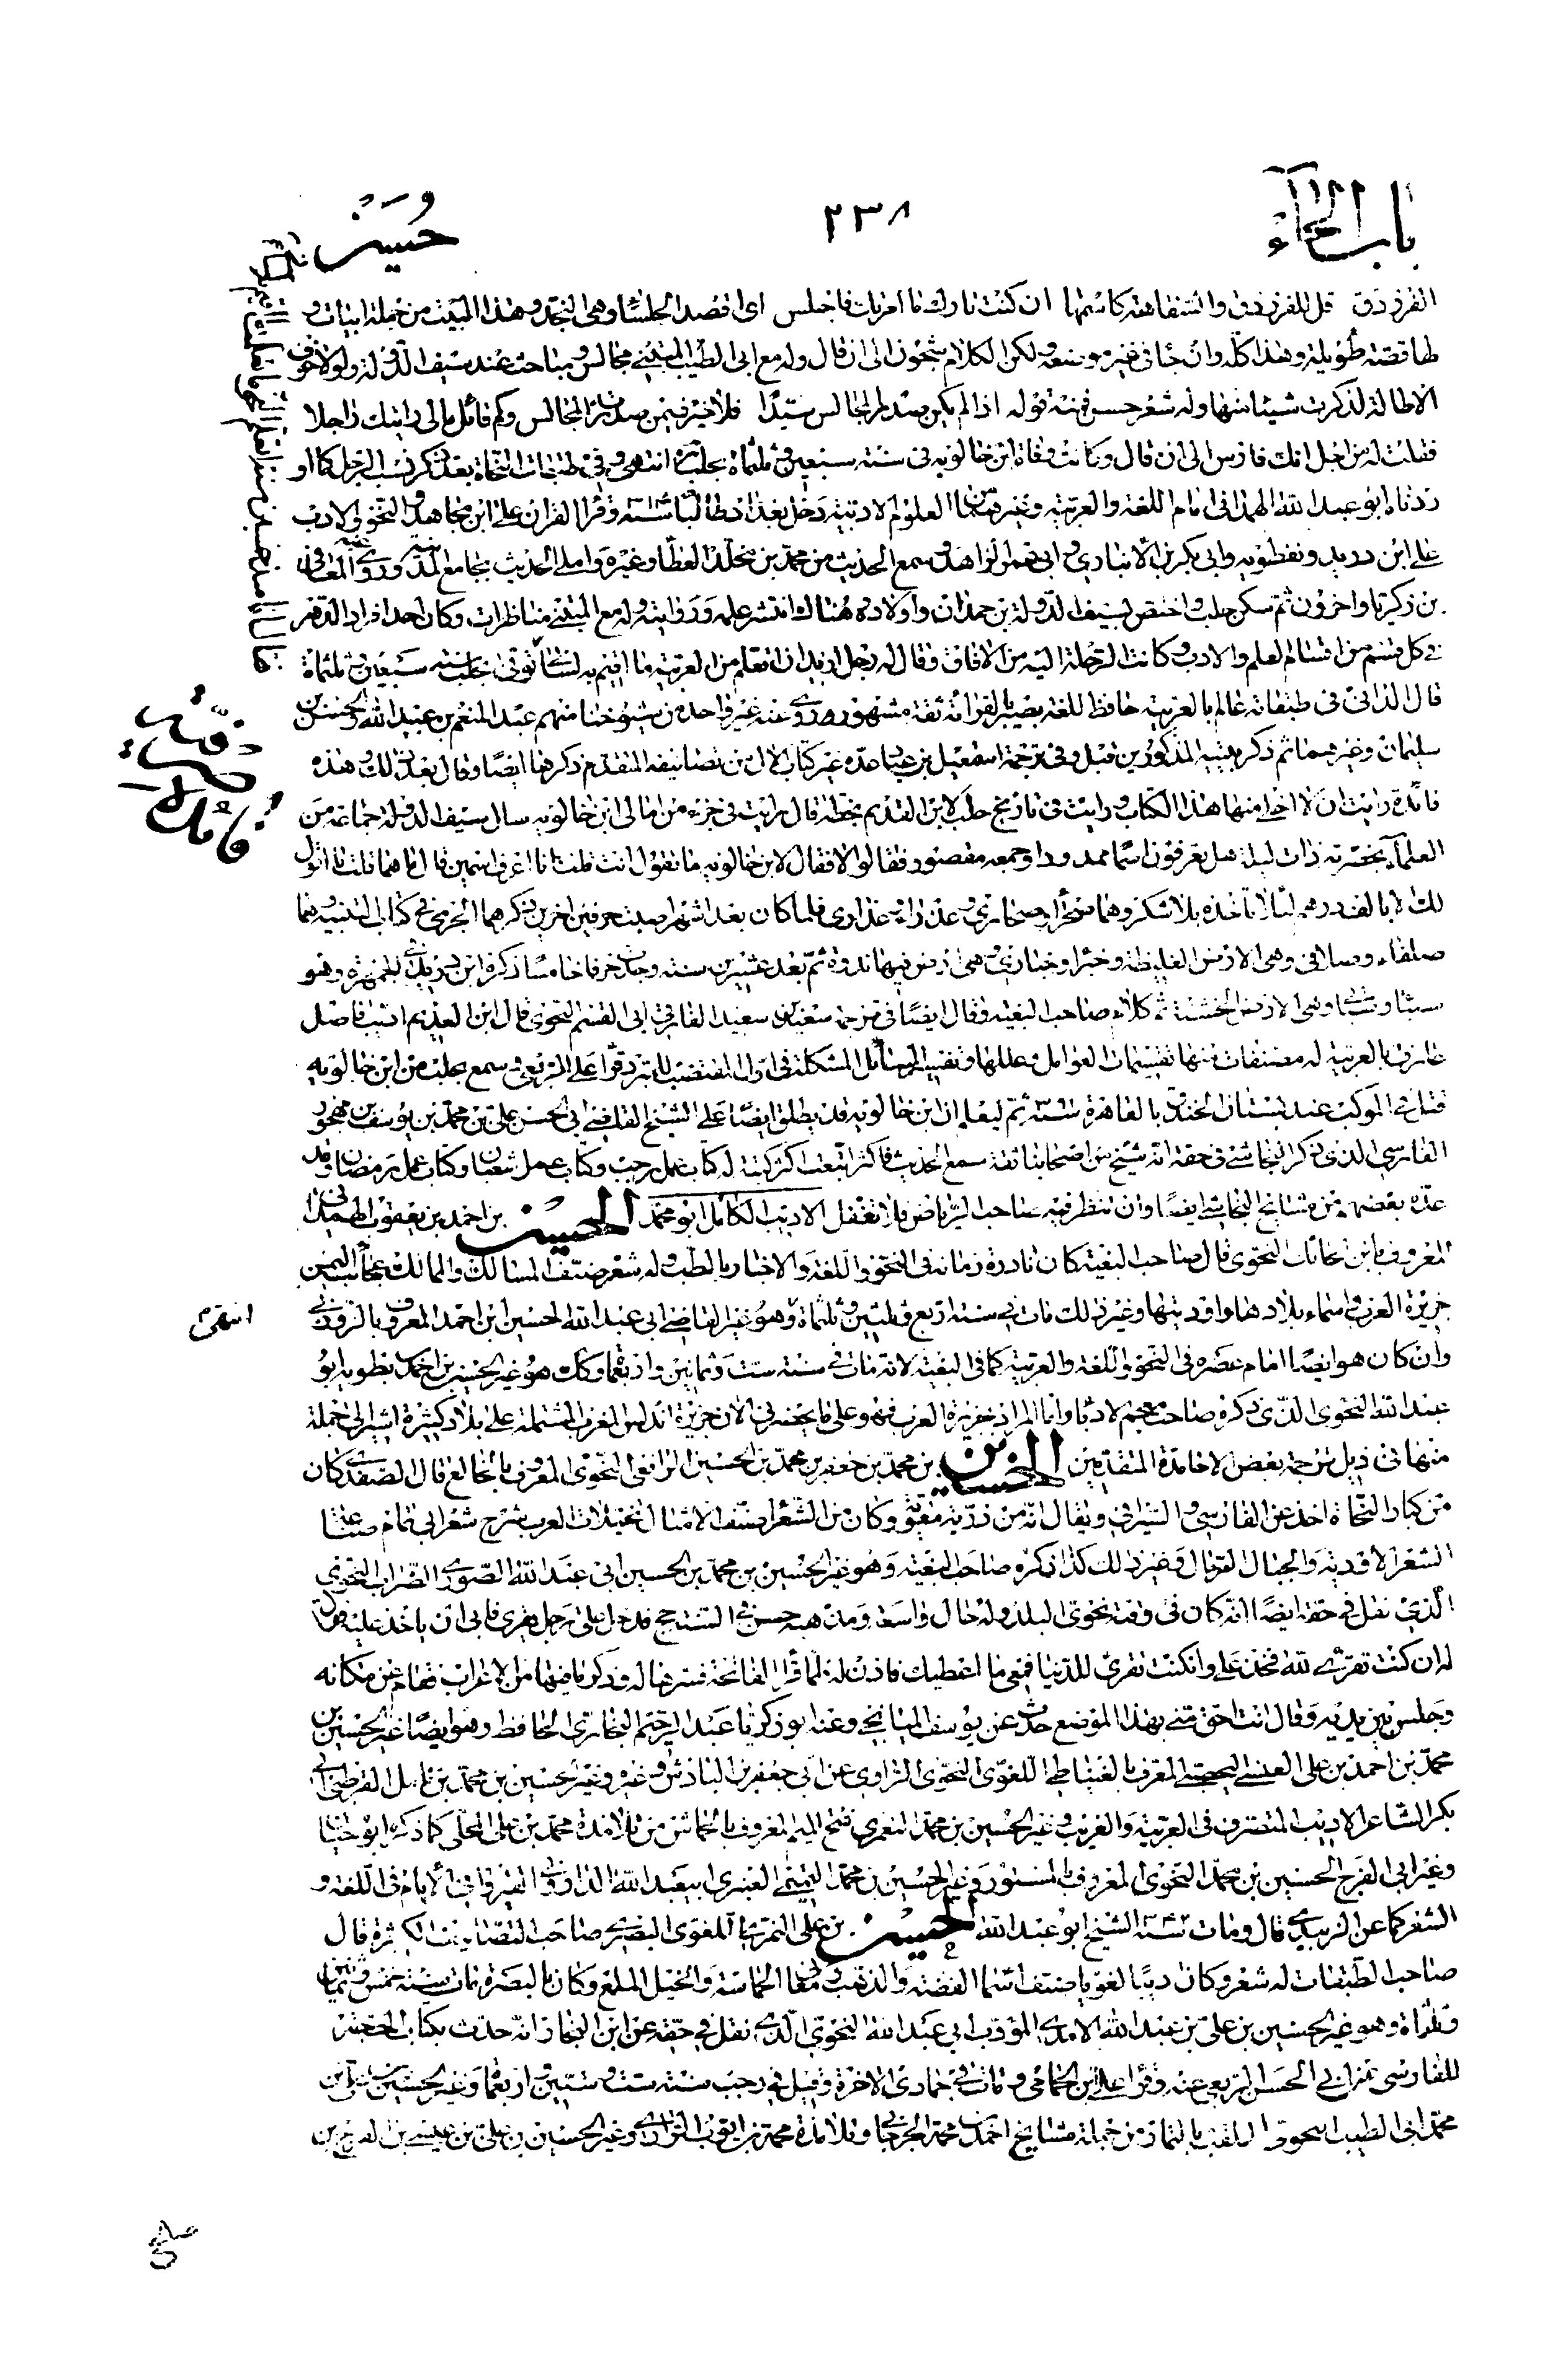 باب الحاء
٢٣٨
حسين
الفرزدق قل للفرزدق والسفاهة كاسمها ان كنت تارك ما امرتك فاجلس اى اقصد الجلسا وهى النجد وهذا البيت من جملة ابيات و
لها قصة طويلة وهذا كله وان جاء فى غير موضعه لكن الكلام شجون الى ان قال وله مع ابى الطيب المتنبى مجالس ومباحث عند سيف الدولة ولولا خوف
الاطالة لذكرت شيئا منها وله شعر حسن فمنه قوله اذا لم يكن صدر المجالس سيدا فلا خير فيمن صدرته المجالس وكم قائل مالى رايتك راجلا
فقلت له من اجل انك فارس الى ان قال وكانت وفاة ابن خالويه فى سنة سبعين وثلثمائة بحلب انتهى وفى طبقات النحاة بعد ذكر نسب الرجل كما او
ردناه ابو عبد الله الهمدانى امام اللغة والعربية وغيرهما من العلوم الادبية دخل بغداد طالبا سنة وقرا القران على ابن مجاهد والنحو والادب
على ابن دريد ونفطويه وابى بكر بن الانبارى وابى عمر الزاهد وسمع الحديث من محمد بن مخلد العطار وغيره واملى الحديث بجامع المدينة وروى عنه المعافى
بن زكريا واخرون ثم سكن حلب واختص بسيف الدولة بن حمدان واولاده وهناك انتشر علمه وروايته وله مع المتنبى مناظرات وكان احد افراد الدهر
فى كل قسم من اقسام العلم والادب وكانت الرحلة اليه من الافاق وقال له رجل اريد ان اتعلم من العربية ما اقيم به لسانى توفى بحلب سنة سبعين وثلثمائة
قال الدانى فى طبقاته عالم بالعربية حافظ للغة بصير بالقراءة ثقة مشهور روى عنه غير واحد من شيوخنا منهم عبد المنعم بن عبيد الله والحسن بن
سليمان وغيرهما ثم ذكر بيتيه المذكورين قبل وفى ترجمة اسمعيل بن عباد عده غير كتاب الال من تصانيفه المتقدم ذكرها ايضا وقال بعد ذلك وهذه
فائدة رايت ان لا اخلى منها هذا الكتاب رايت فى تاريخ حلب لابن العديم بخطه قال رايت فى جزء من امالى ابن خالويه سال سيف الدولة جماعة من
العلماء بحضرته ذات ليلة هل تعرفون اسما ممدودا وجمعه مقصور فقالوا لا فقال لابن خالويه ما تقول انت قلت انا اعرف اسمين قال ما هما قلت لا اقول
لك الا بالف درهم لئلا تاخذه بلا شكر وهما صحراء وصحارى وعذراء وعذارى فلما كان بعد شهر اصبت حرفين اخرين ذكرهما الجرمى فى كتاب التنبيه وهما
صلفاء وصلافى وهى الارض الغليظة وخبراء وخبارى وهى ارض فيها ندوة ثم بعد عشرين سنة وجدت حرفا خامسا ذكره ابن دريد فى الجمهرة وهو
سبتا وسباتى وهى الارض الخشنة تم كلام صاحب البغية وقال ايضا فى ترجمة سعيد بن سعيد الفارقى ابى القسم النحوى قال ابن العديم اديب فاضل
عارف بالعربية له مصنفات منها تقسيمات العوامل وعللها وتفسير المسائل المشكلة فى اول المقتضب للمبرد قرا على الربعى وسمع بحلب من ابن خالويه
قتل فى الموكب عند بستان الخندق بالقاهرة سنة ثم ليعلم ان ابن خالويه قد يطلق ايضا على الشيخ القاضى ابى الحسن على بن محمد بن يوسف بن مهجور
الفارسى الذى ذكر النجاشى فى حقه انه شيخ من اصحابنا ثقة سمع الحديث فاكثر ابتعت اكثر كتبه له كتاب عمل رجب وكتاب عمل شعبان وكتاب عمل رمضان وقد
عده بعضهم من مشايخ النجاشى ايضا وان تنظر فيه صاحب الرياض فلا تغفل الاديب الكامل ابو محمد الحسين بن احمد بن يعقوب الهمدانى
المعروف بابن الحائك النحوى قال صاحب البغية كان نادرة زمانه فى النحو واللغة والاخبار والطب وله شعر صنف المسالك والممالك عجائب اليمن
جزيرة العرب واسماء بلادها واوديتها وغير ذلك مات فى سنة اربع وثلثين وثلثمائة وهو غير القاضى ابى عبد الله الحسين ابن احمد المعروف بالزوزنى
انتهى
وان كان هو ايضا امام عصره فى النحو واللغة والعربية كما فى البغية لانه مات فى سنة ست وثمانين واربعمائة وكذلك هو غير الحسين بن احمد بن بطويه ابو
عبد الله النحوى الذى ذكره صاحب معجم الادباء واما المراد بجزيرة العرب فهو على ما يحضرنى الان جزيرة اندلس المغرب المشتملة على بلاد كثيرة اشير الى جملة
منها فى ذيل ترجمة بعض الاحامدة المتقدمين الحسين بن محمد بن جعفر بن محمد بن الحسين الرافقى النحوى المعروف بالخالع قال الصفدى كان
من كبار النحاة اخذ عن الفارسى والسيرافى ويقال انه من ذرية معوية وكان من الشعراء صنف الامثال تخيلات العرب شرح شعر ابى تمام صناعة
الشعر الاودية والجبال الرمال وغير ذلك كذا ذكره صاحب البغية وهو غير الحسين بن محمد بن الحسين ابى عبد الله الصورى الضراب النحوى
الذى نقل فى حقه ايضا انه كان فى وقته نحوى البلد وله حال واسعة ومذهب حسن فى السنة حج فدخل على رجل مقرى فابى ان ياخذ عليه فقال
له ان كنت تقرى لله فخذ على وان كنت تقرى للدنيا فمعى ما اعطيك فاذن له فلما قرا الفاتحة فسرها له وذكر ما فيها من الاعراب فقام عن مكانه
وجلس بين يديه وقال انت احق منى بهذا الموضع حدث عن يوسف الميانجى وعنه ابو زكريا عبد الرحيم البخارى الحافظ وهو ايضا غير الحسين بن
محمد بن احمد بن على العنسى المعروف اللغوى النحوى الراوى عن ابى جعفر بن الباذش وغيره وغير حسين بن محمد بن نابل القرطبى ابى
بكر الشاعر الاديب المتصرف فى العربية والغريب وغير الحسين بن محمد النعمرى بفتح الميم المعروف من تلامذة محمد بن على المحلى كما ذكره ابو حيان
وغير ابى الفرج الحسين بن محمد النحوى المعروف بالمستور وغير الحسين بن محمد التميمى العنبرى ابى عبد الله القيروانى الامام فى اللغة و
الشعر كما عن الزبيدى قال ومات سنة الشيخ ابو عبد الله الحسين بن على النمرى اللغوى البصرى صاحب التصانيف الكثيرة قال
صاحب الطبقات له شعر وكان دينا لغويا صنف اسماء الفضة والذهب ومعانى الحماسة والخيل الملمع وكان بالبصرة مات سنة خمس وثمانين
وثلثمائة وهو غير الحسين بن على بن عبد الله الامدى المؤدب ابى عبد الله النحوى الذى نقل فى حقه عن ابن النجار انه حدث بكتاب المختصر
للفارسى عن ابى الحسن الربعى عنه وقرا على ابن الحمامى ومات فى جمادى الاخرة وقيل فى رجب سنة ست وستين واربعمائة وغير الحسين بن على بن
محمد ابى الطيب النحوى الملقب بالتمار من جملة مشايخ احمد بن محمد الجرجانى وتلامذة محمد بن ايوب الرازى وغير الحسين بن على بن عيسى بن الفرج بن
فائدة
على